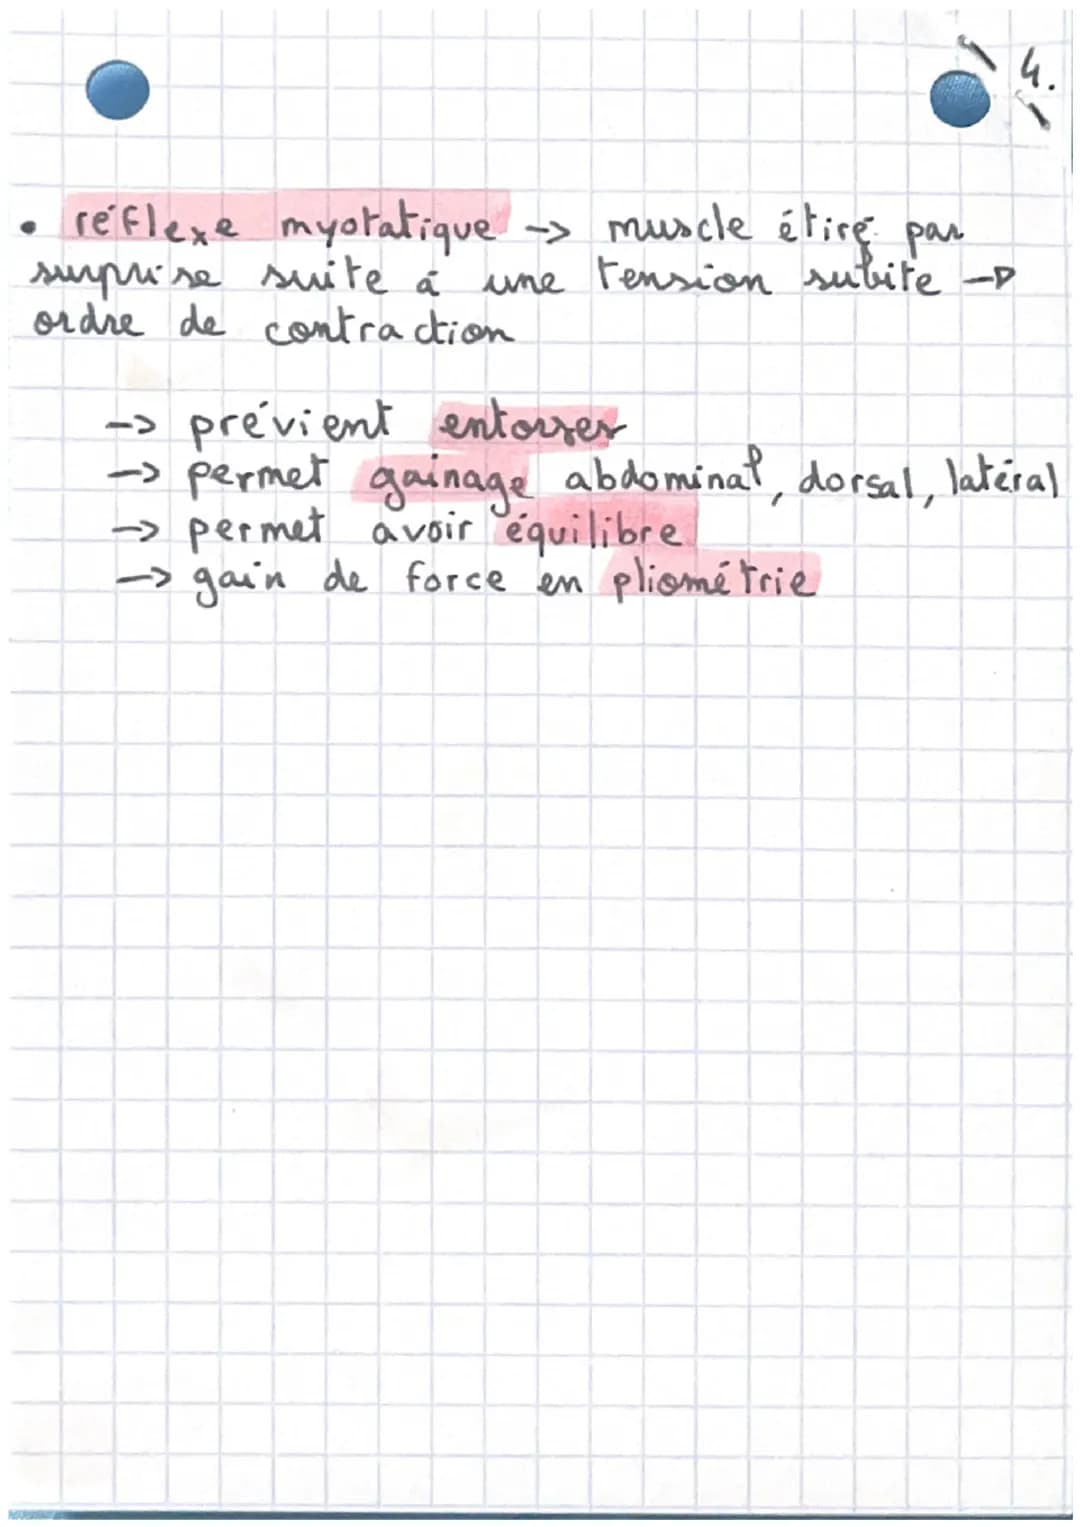 4.
• réflexe myotatique -> muscle étiré par
surprise suite á une tension subite ->
ordre de contraction
-> prévient entorses
-> permet gainage abdominal, dorsal, latéral
-> permet avoir équilibre
-> gain de force en pliométrie